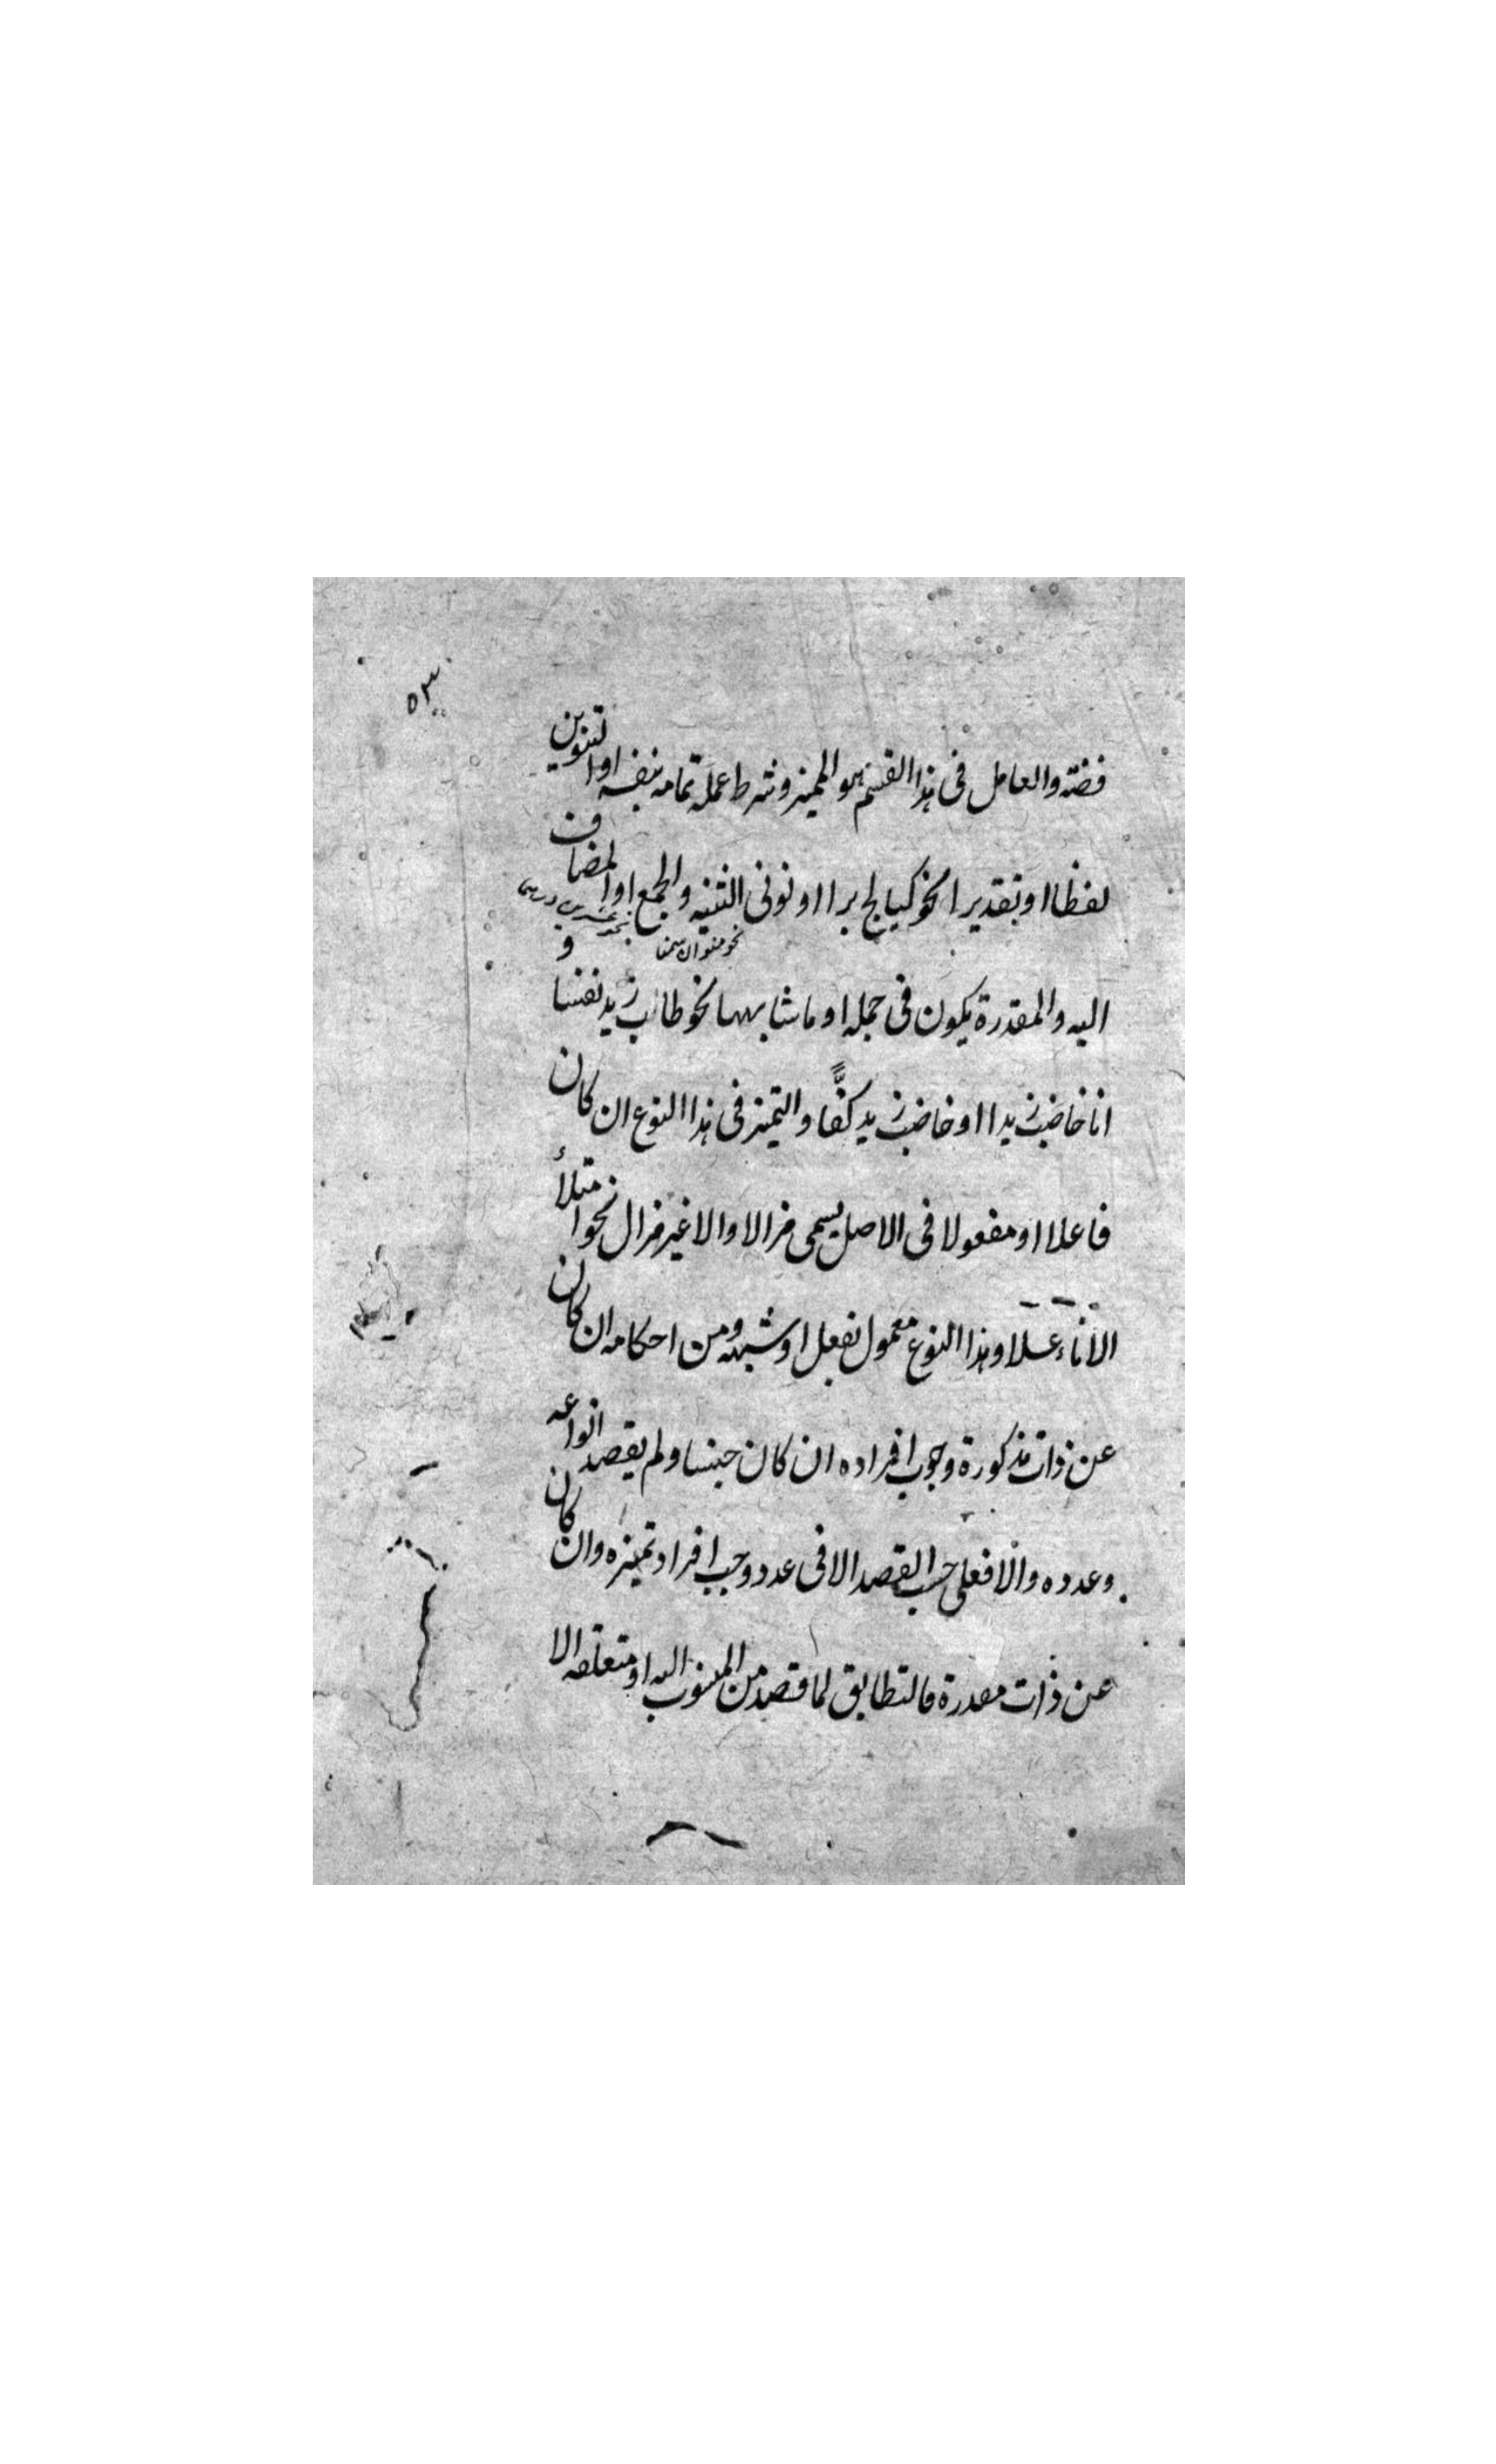 ٥٣
فضته والعامل فى هذا القسم هو المميز وشرط عمله تمامه بنفسه او التنوين
لفظا او تقديرا نحو كيالج برا او نونى التثنيه والجمع او المضاف
نحو منوان سمنا
نحو عشرين درهما
و
اليه والمقدرة يكون فى جمله او ما شابهها نحو طاب زيد نفسا
انا خاضب زيدا او خاضب زيد كفًّا والتميز فى هذا النوع ان كان
فاعلا او مفعولا فى الاصل يسمى مزالا والا غير مزال نحو امتلأ
الاناء عسلا وهذا النوع معمول لفعل او شبهه ومن احكامه ان كان
عن ذات مذكورة وجوب افراده ان كان جنسا ولم يقصد انواعه
وعدده والا فعلى حسب القصد الا فى عدد وجب افراد تميزه وان كان
عن ذات مقدرة فالتطابق لما قصد من المنسوب اليه او متعلقه الا